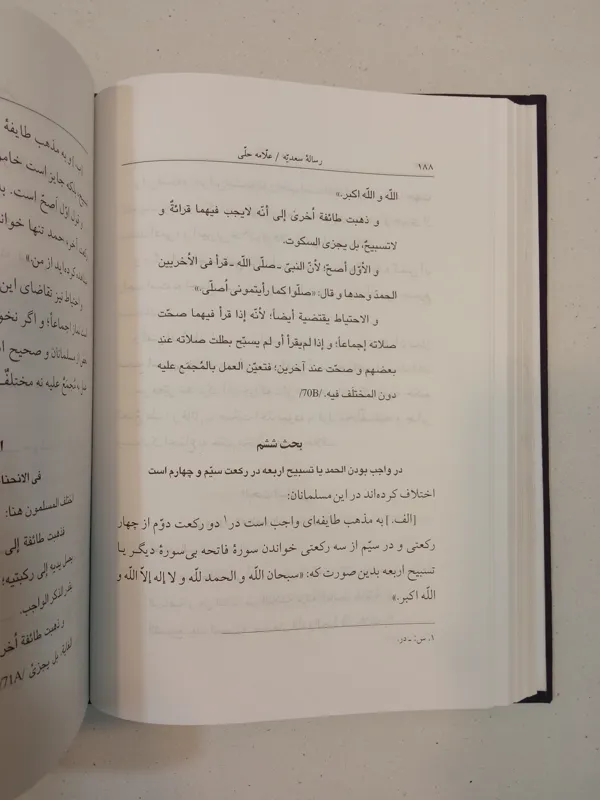 ۱۸۸
رسالهٔ سعدیّه / علّامه حلّی
اللّه و اللّه اکبر.»
و ذهبت طائفة أخریٰ إلی أنّه لایجب فیهما قرائةٌ و
لاتسبیحٌ، بل یجزی السکوت.
و الأوّل أصحّ؛ لأنّ النبیّ ـ صلّی اللّه ـ قرأ فی الأخریین
الحمدَ وحدها و قال: «صلّوا کما رأیتمونی أصلّی.»
و الاحتیاط یقتضیهٔ أیضاً؛ لأنّه إذا قرأ فیهما صحّت
صلاته إجماعاً؛ و إذا لم‌یقرأ أو لم یسبّح بطلت صلاته عند
بعضهم و صحّت عند آخرین؛ فتعیّن العمل بالمُجمَع علیه
دون المختلَف فیه. /70B/
بحث ششم
در واجب بودن الحمد یا تسبیح اربعه در رکعت سیّم و چهارم است
اختلاف کرده‌اند در این مسلمانان:
[الف.] به مذهب طایفه‌ای واجب است در۱ دو رکعت دوّم از چهار
رکعتی و در سیّم از سه رکعتی خواندن سورهٔ فاتحه بی‌سورهٔ دیگر یا
تسبیح اربعه بدین صورت که: «سبحان اللّه و الحمد للّه و لا اله إلاّ اللّه و
اللّه اکبر.»
۱. س: ـ در.
و به مذهب طایفهٔ
بلکه جایز است
و قول اوّل أصحّ است.
حمد تنها
از من.»
و احتیاط نیز تقاضای این
إجماعاً؛ و اگر
مسلمانان و صحیح
مُجمَعٌ علیه نه
فی
اختلف المسلمون هنا:
فذهبت طائفة إلی
یدیه إلی رکبتیه؛
بقدر الذکر الواجب.
و ذهبت طائفة
بل یجزیٔ /71A/